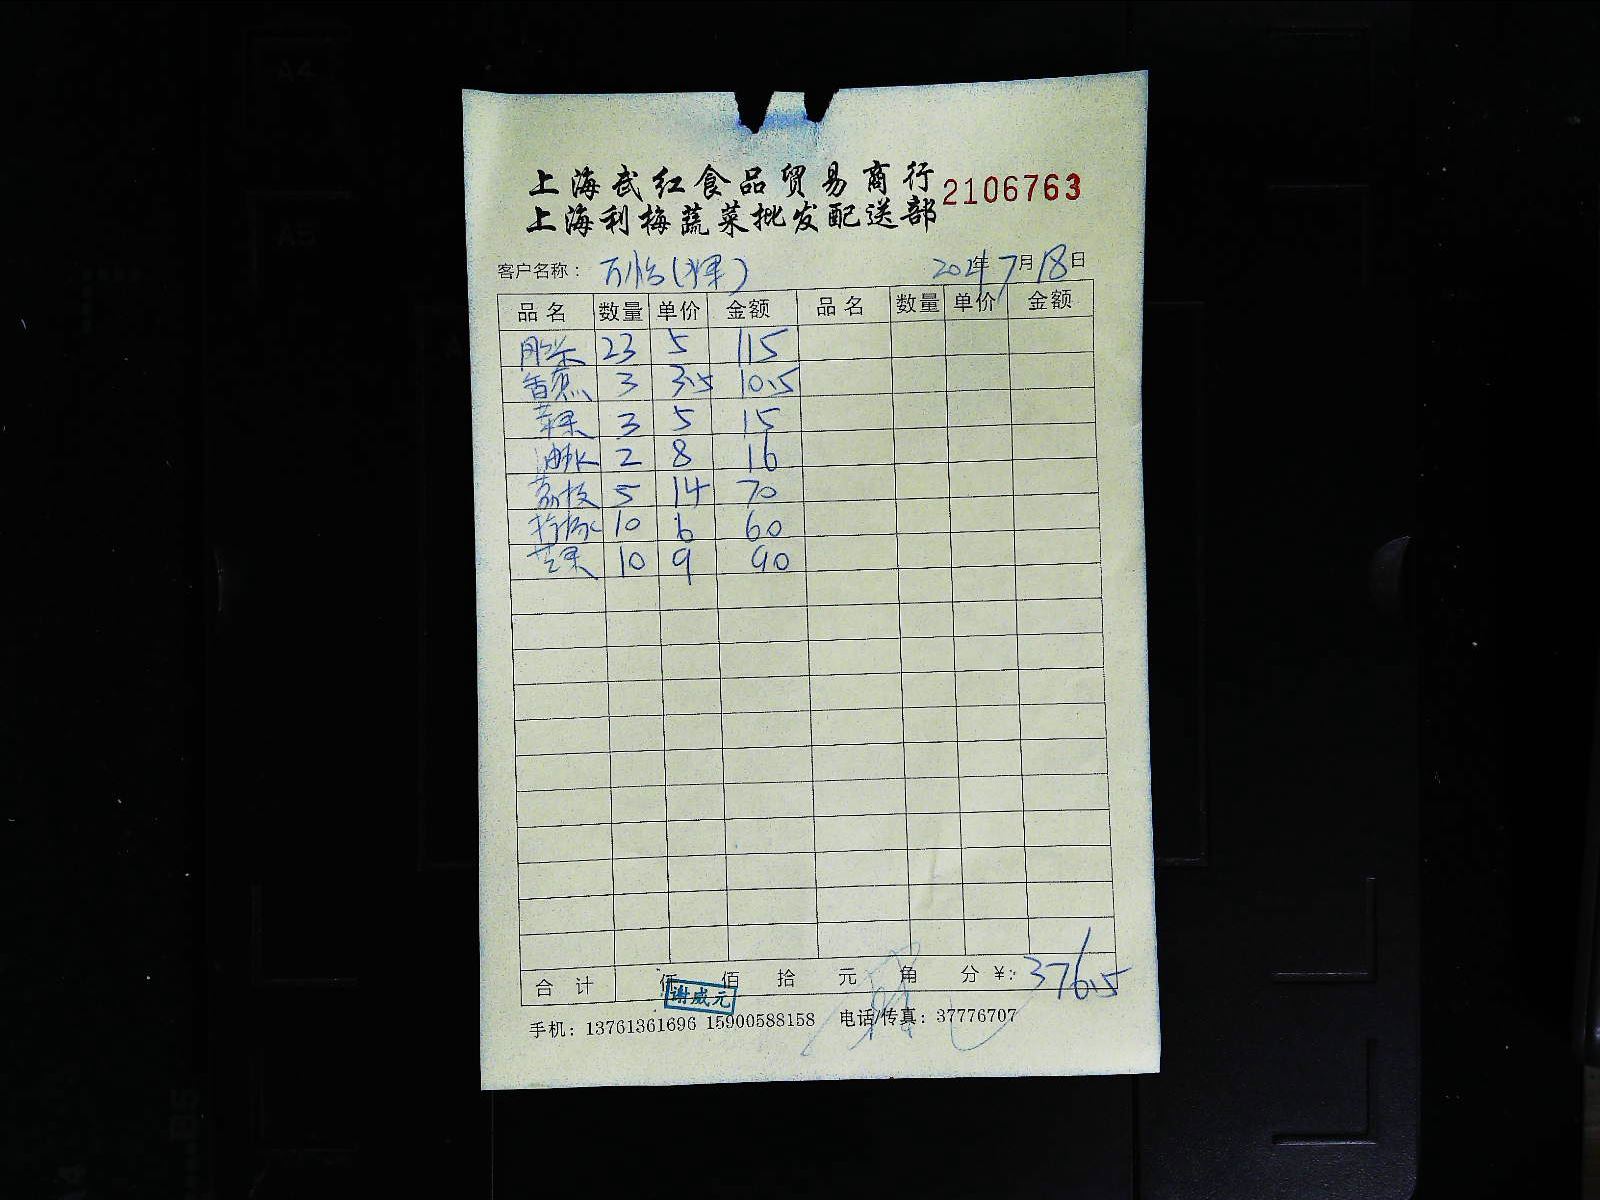 上海武红食品贸易商行
上海利梅蔬菜批发配送部 2106763
客户名称： 万怡(水果) 2024年7月18日
品名 数量 单价 金额 品名 数量 单价 金额
23 5 115
香蕉 3 3.5 10.5
苹果 3 5 15
油桃 2 8 16
荔枝 5 14 70
10 6 60
芒果 10 9 90
合计 仟 佰 拾 元 角 分 ¥: 376.5
谢威元
手机：13761361696 15900588158 电话/传真：37776707